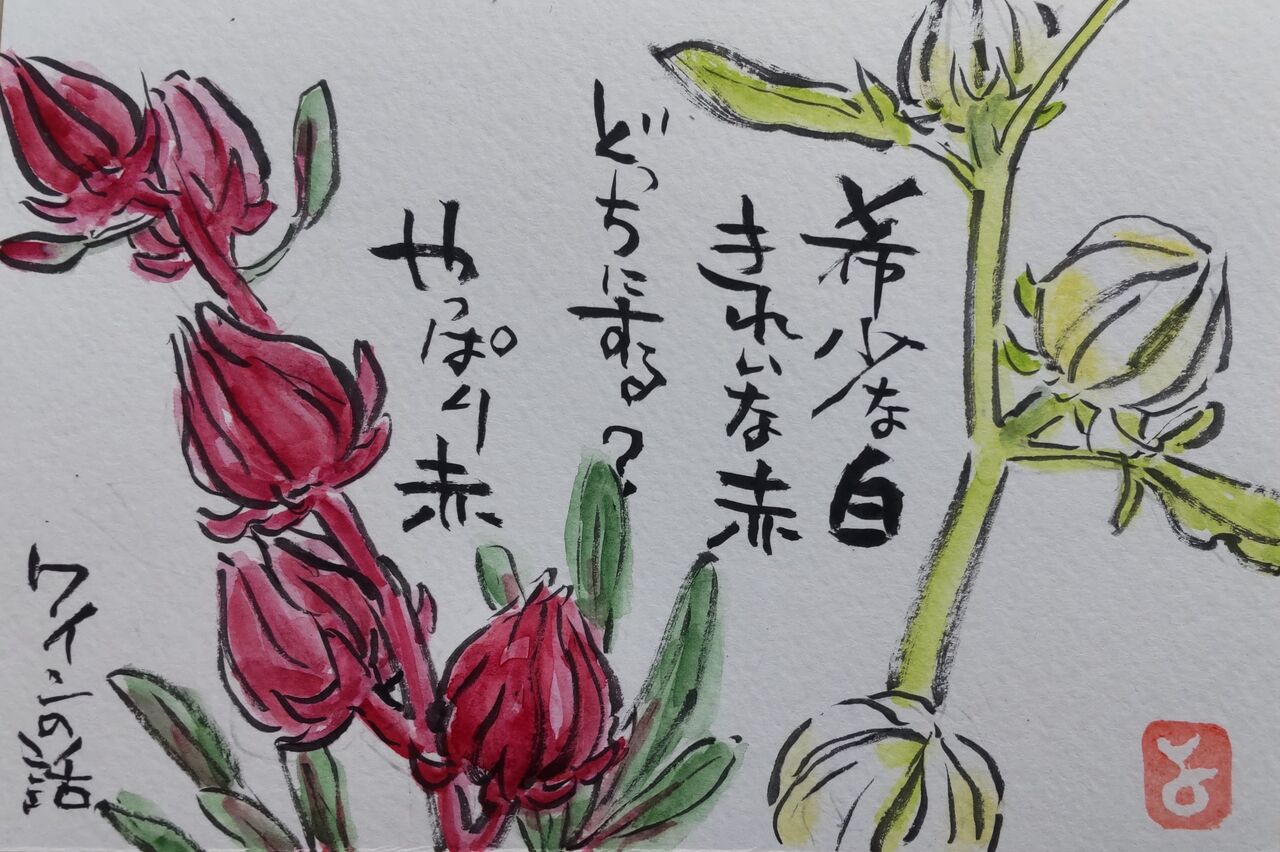 希少な白
きれいな赤
どっちにする?
やっぱり赤
ワインの話